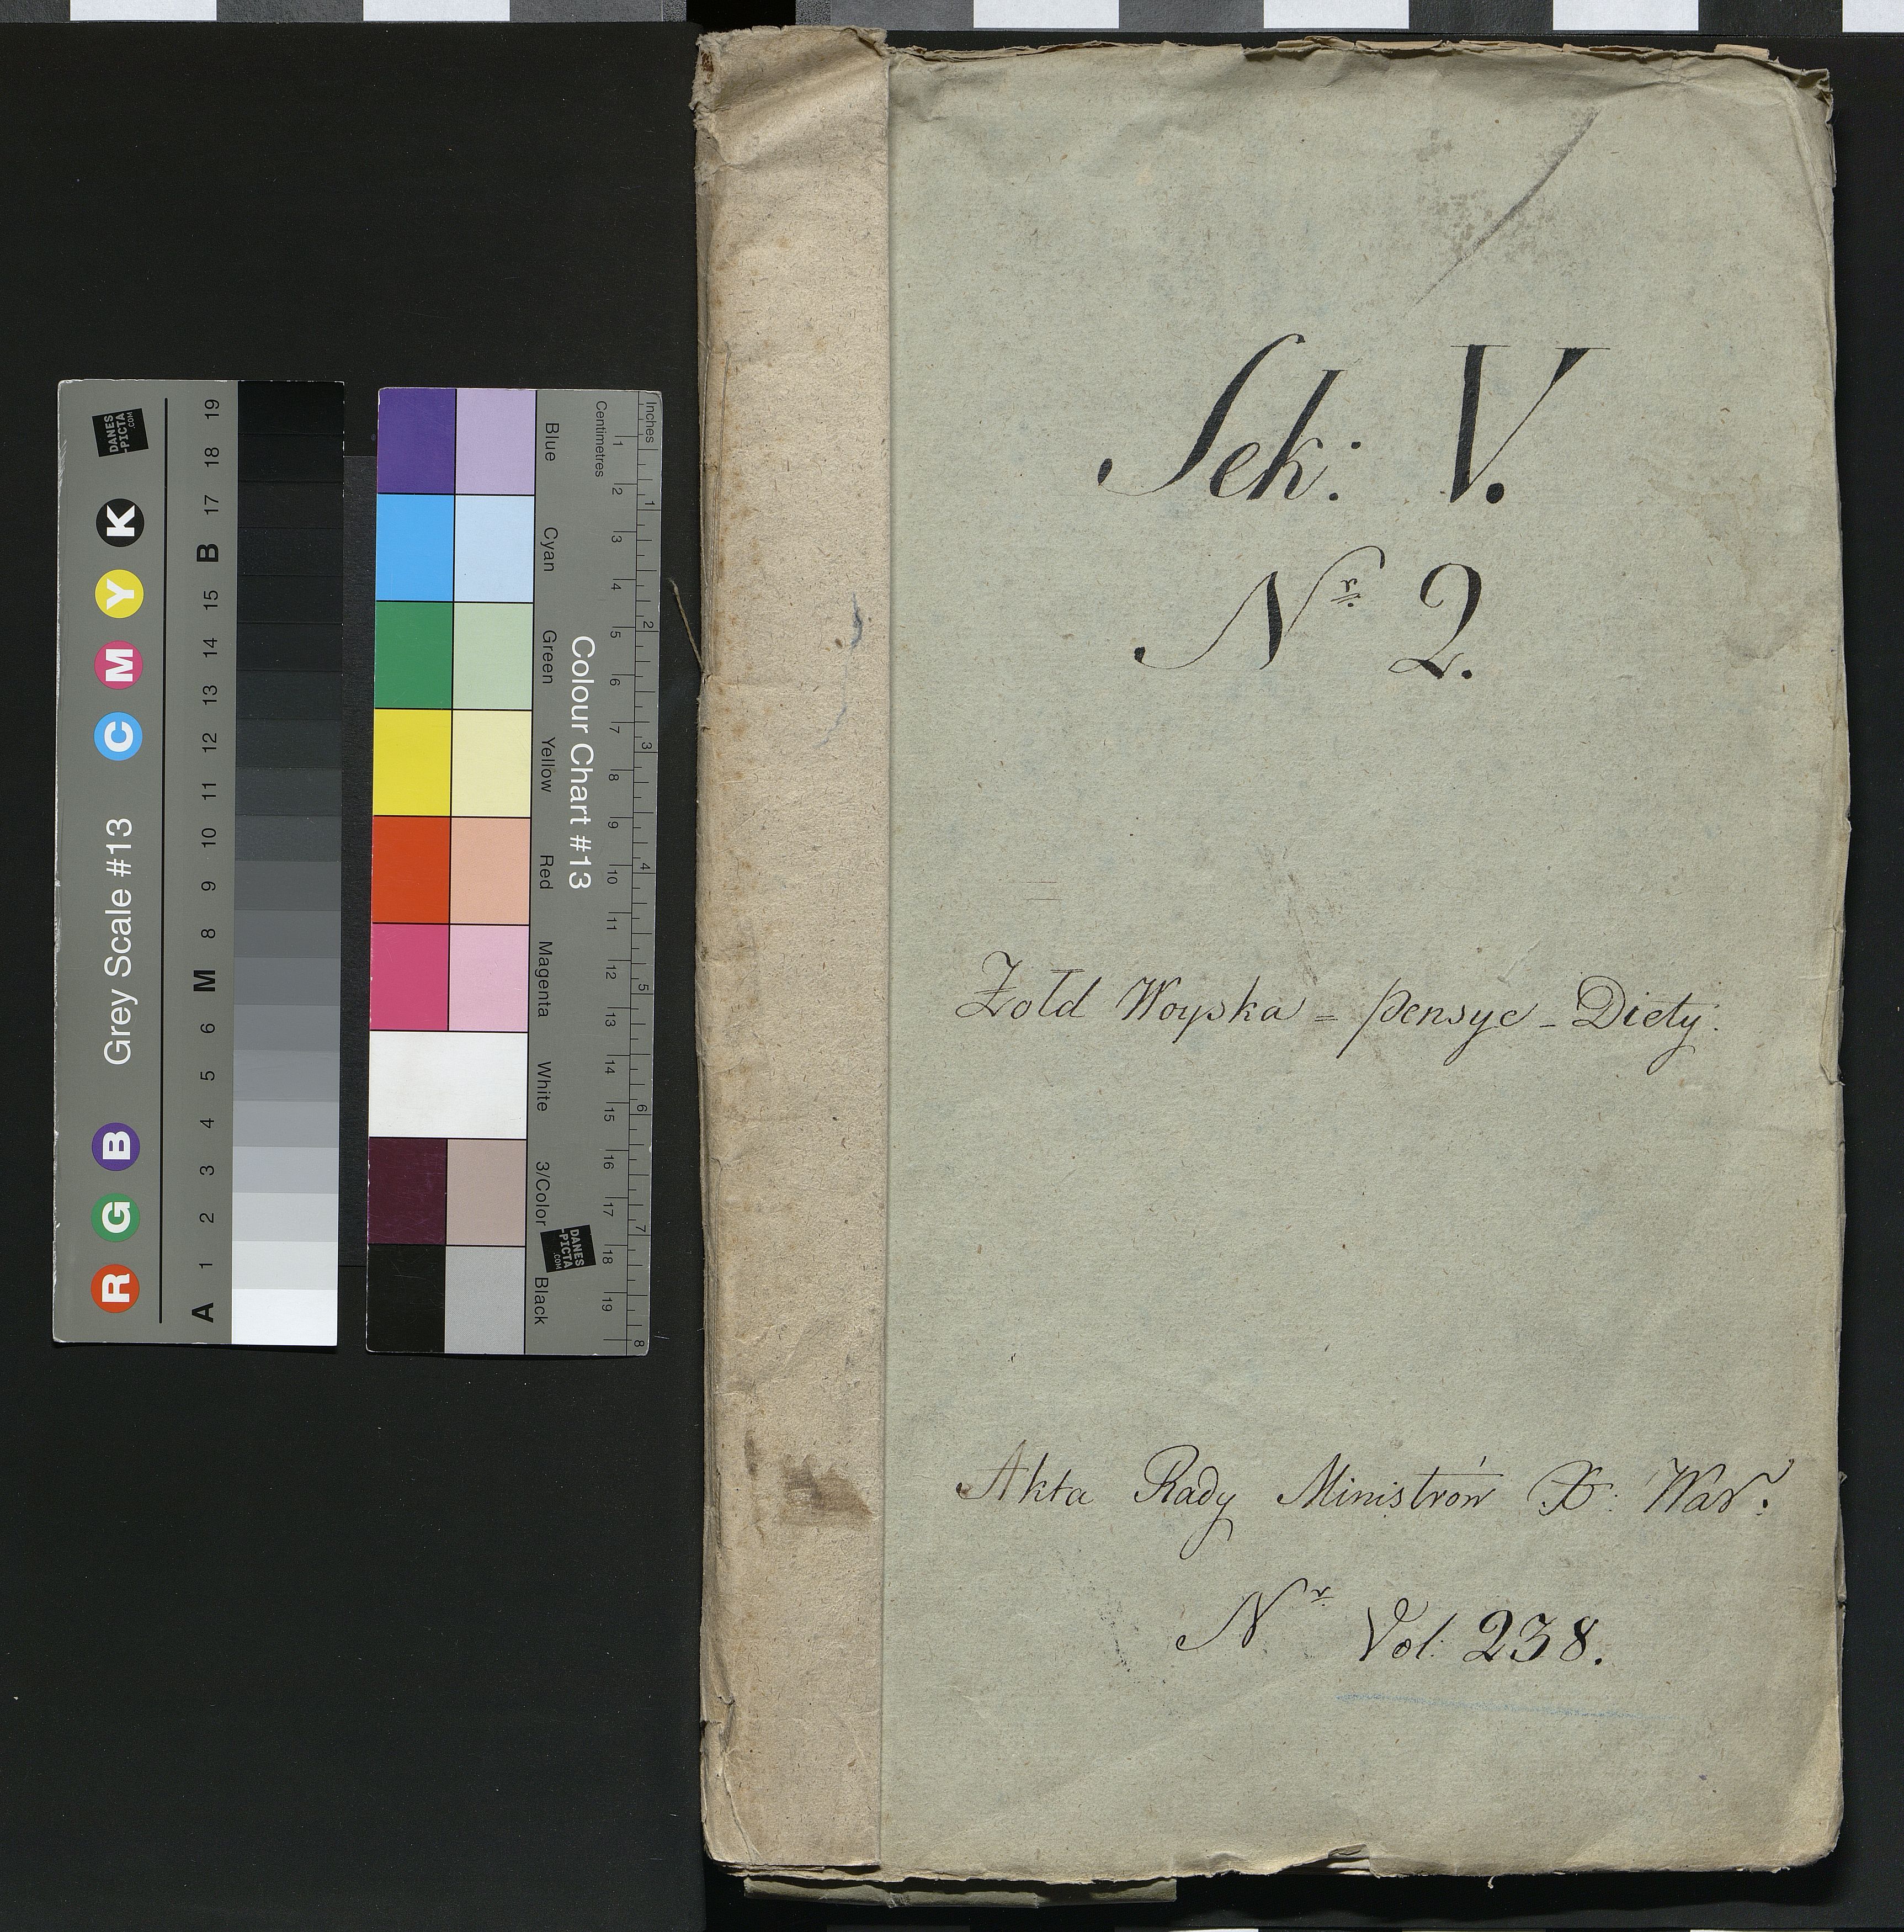 Sek: V.
Nr 2.
Żołd Woyska = pensye - Diety:
Akta Rady Ministrów X: War:
Nr Vol: 238.
Grey Scale #13
R G B C M Y K
A 1 2 3 4 5 6 M 8 9 10 11 12 13 14 15 B 17 18 19
DANES
-PICTA
.COM
Colour Chart #13
Blue Cyan Green Yellow Red Magenta White 3/Color Black
Centimetres 1 2 3 4 5 6 7 8 9 10 11 12 13 14 15 16 17 18 19
Inches 1 2 3 4 5 6 7 8
DANES
-PICTA
.COM